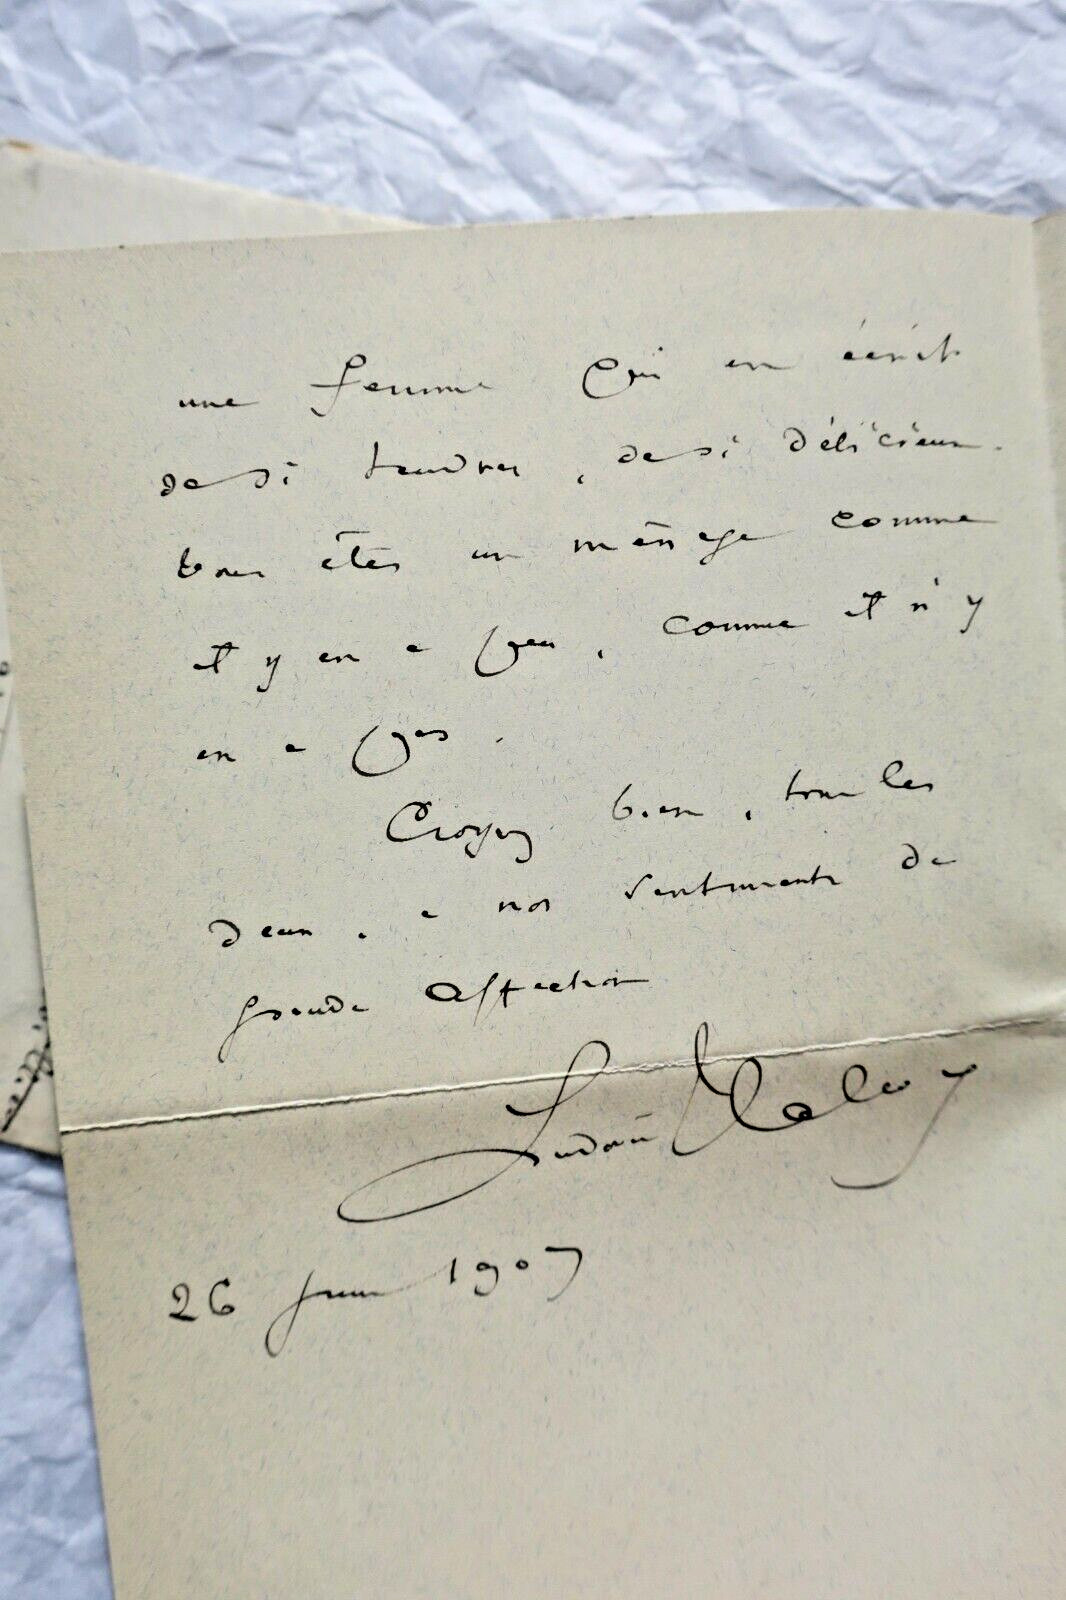 une femme qui en écrit
de si tendres, de si délicieux.
Vous êtes un ménage comme
il y en a peu, comme il n'y
en a pas.
Croyez bien, tous les
deux, à nos sentiments de
grande affection
Ludovic Halévy
26 juin 1907